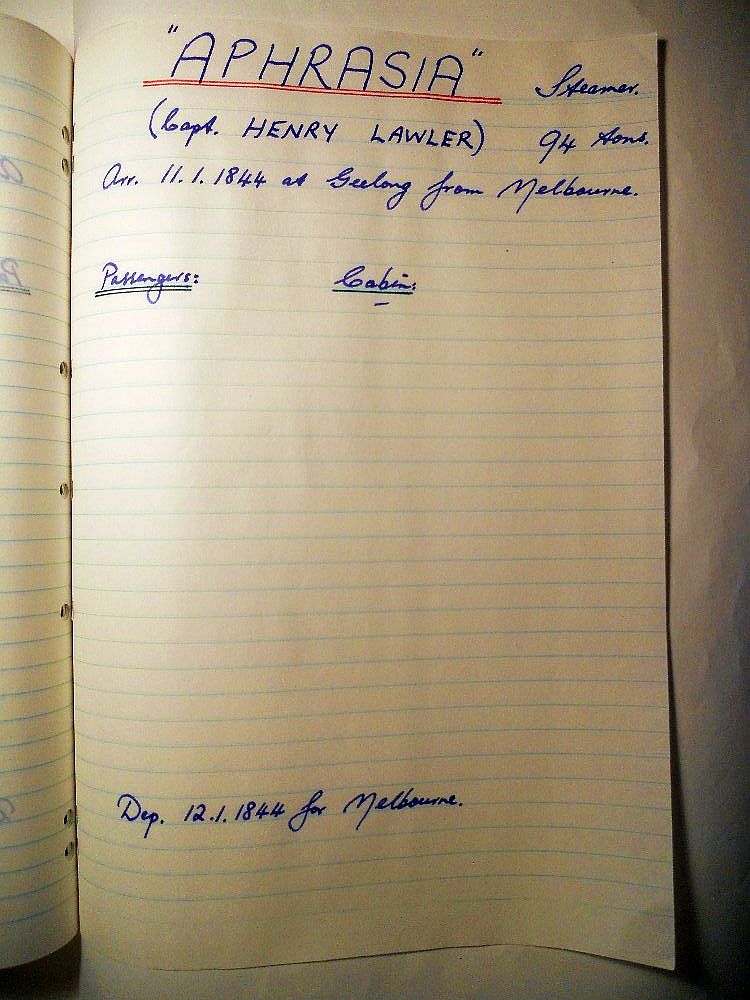 "APHRASIA" Steamer.
(Capt. HENRY LAWLER) 94 tons.
Arr. 11.1.1844 at Geelong from Melbourne.
Passengers: Cabin:
–
Dep. 12.1.1844 for Melbourne.